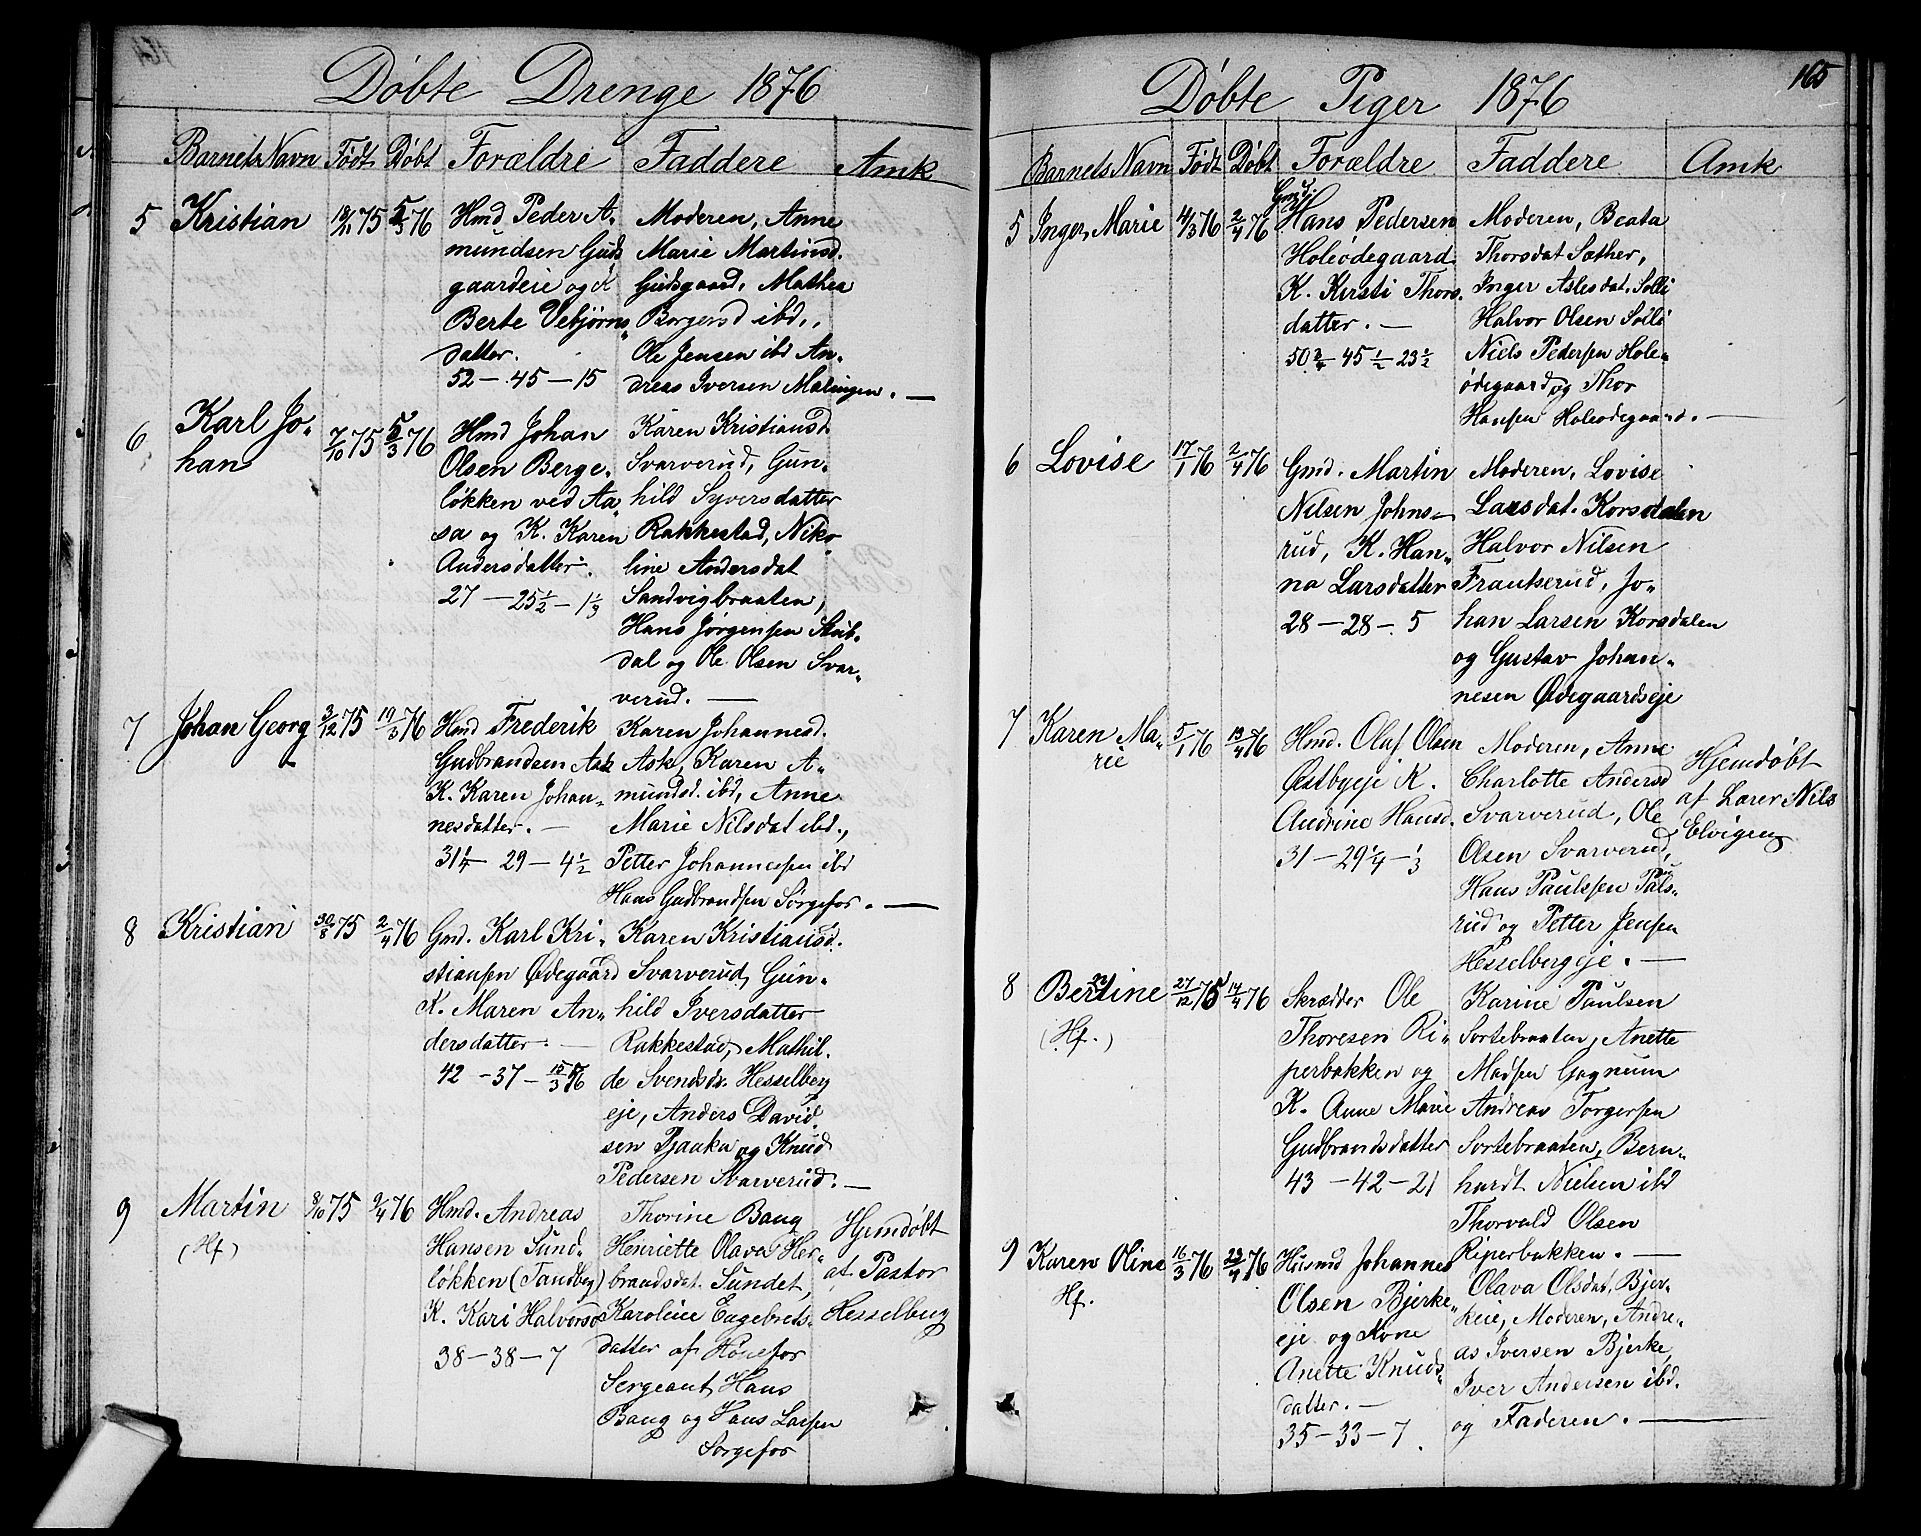 Døbte Drenge 1876
Barnets Navn Født Døbt Forældre Faddere Amk
5 Kristian 75 5/3 76 Hmd Peder A-
mundsen Guds
gaardeie og K
Berte Vebjørns-
datter.
52 - 45 - 15
Moderen, Anne
Marie Martinsd.
Gudsgaard, Mathea
Borgersd ibd.,
Ole Jensen ibd An-
dreas Iversen Malingen. —
6 Karl Jo-
han 7/10 75 5/3 76 Hmd Johan
Olsen Berge-
løkken ved Aa-
sa og K. Karen
Andersdatter.
27 - 25 1/2 - 1 1/3
Karen Kristiansd.
Svarverud, Gun-
hild Syversdatter
Rakkestad, Niko-
line Andersdat
Sandvigbraaten,
Hans Jørgensen
dal og Ole Olsen Svar-
verud. —
7 Johan Georg 3/12 75 19/3 76 Hmd Frederik
Gudbrandsen Ask
K. Karen Johan-
nesdatter. —
31 1/4 - 29 - 4 1/2
Karen Johannesd.
Ask, Karen A-
mundsd. ibd, Anne
Marie Nilsdat ibd.,
Petter Johannessen ibd
Hans Gudbrandsen Sørgefos. —
8 Kristian 30/8 75 2/4 76 Gmd. Karl Kri-
stiansen Ødegaard
K. Maren An-
dersdatter. —
42 - 37 - 15/3 76
Karen Kristiansd.
Svarverud, Gun-
hild Iversdatter
Rakkestad, Mathil-
de Svendsdr. Hesselberg
eje, Anders David-
sen Pjaaka og Knud
Pedersen Svarverud. —
9 Martin 8/10 75 9/4 76 Hmd. Andreas
(Hf)
Hansen Sund-
løkken (Tandberg)
K. Kari Halvorsd
38 - 38 - 7
Thorine Bang
Henriette Olava Her-
brandsdat. Sundet,
Karoline Engebrets-
datter af Hønefos
Sergeant Hans
Bang og Hans Larsen
Sørgefos
Hjemdøbt
af Pastor
Hesselberg
165
Døbte Piger 1876
Barnets Navn Født Døbt Forældre Faddere Amk
5 Inger Marie 4/3 76 2/4 76 Gmd
Hans Pedersen
Holeødegaard
K. Kirsti Thors-
datter. —
50 3/4 - 45 1/2 - 23 1/2
Moderen, Beata
Thorsdat Sæther,
Inger Aslesdat. Solli
Halvor Olsen Solli
Niels Pedersen Hole-
ødegaard og Thor
Hansen Holeødegaard. —
6 Lovise 17/1 76 2/4 76 Gmd. Martin
Nilsen Johns-
rud, K. Han-
na Larsdatter
28 - 28 - 5
Moderen, Lovise
Larsdat. Korsdalen
Halvor Nilsen
Frautserud, Jo-
han Larsen Korsdalen
og Gustav Johan-
nesen Ødegaardseje
7 Karen Ma-
rie 5/1 76 76 Hmd. Olaf Olsen
Østbyeje K.
Andrine Hansd.
31 - 29 1/4 - 1/3
Moderen, Anne
Charlotte Andersd
Svarverud, Ole
Olsen Svarverud,
Hans Paulsen Pals-
rud og Petter Jensen
Hesselbergeje. —
Hjemdøbt
af Lærer Nils
Elvigen
8 Bertine 27/12 75 14/4 76 Skrædder Ole
(Hf.)
Thoresen Ri-
perbakken og
K. Anne Marie
Gudbrandsdatter
43 - 42 - 21
Karine Paulsen
Sortebraaten, Anette
Madsen Gagnum
Andreas Torgersen
Sortebraaten, Bern-
hardt Nielsen ibd
Thorvald Olsen
Riperbakken. —
9 Karen Oline 16/3 76 23/4 76 Husmd Johannes
Hf.
Olsen Bjerke-
eje og Kone
Anette Knuds-
datter. —
35 - 33 - 7
Olava Olsdat, Bjer-
keie, Moderen, Andre-
as Iversen Bjerke,
Iver Andersen ibd.
og Faderen. —